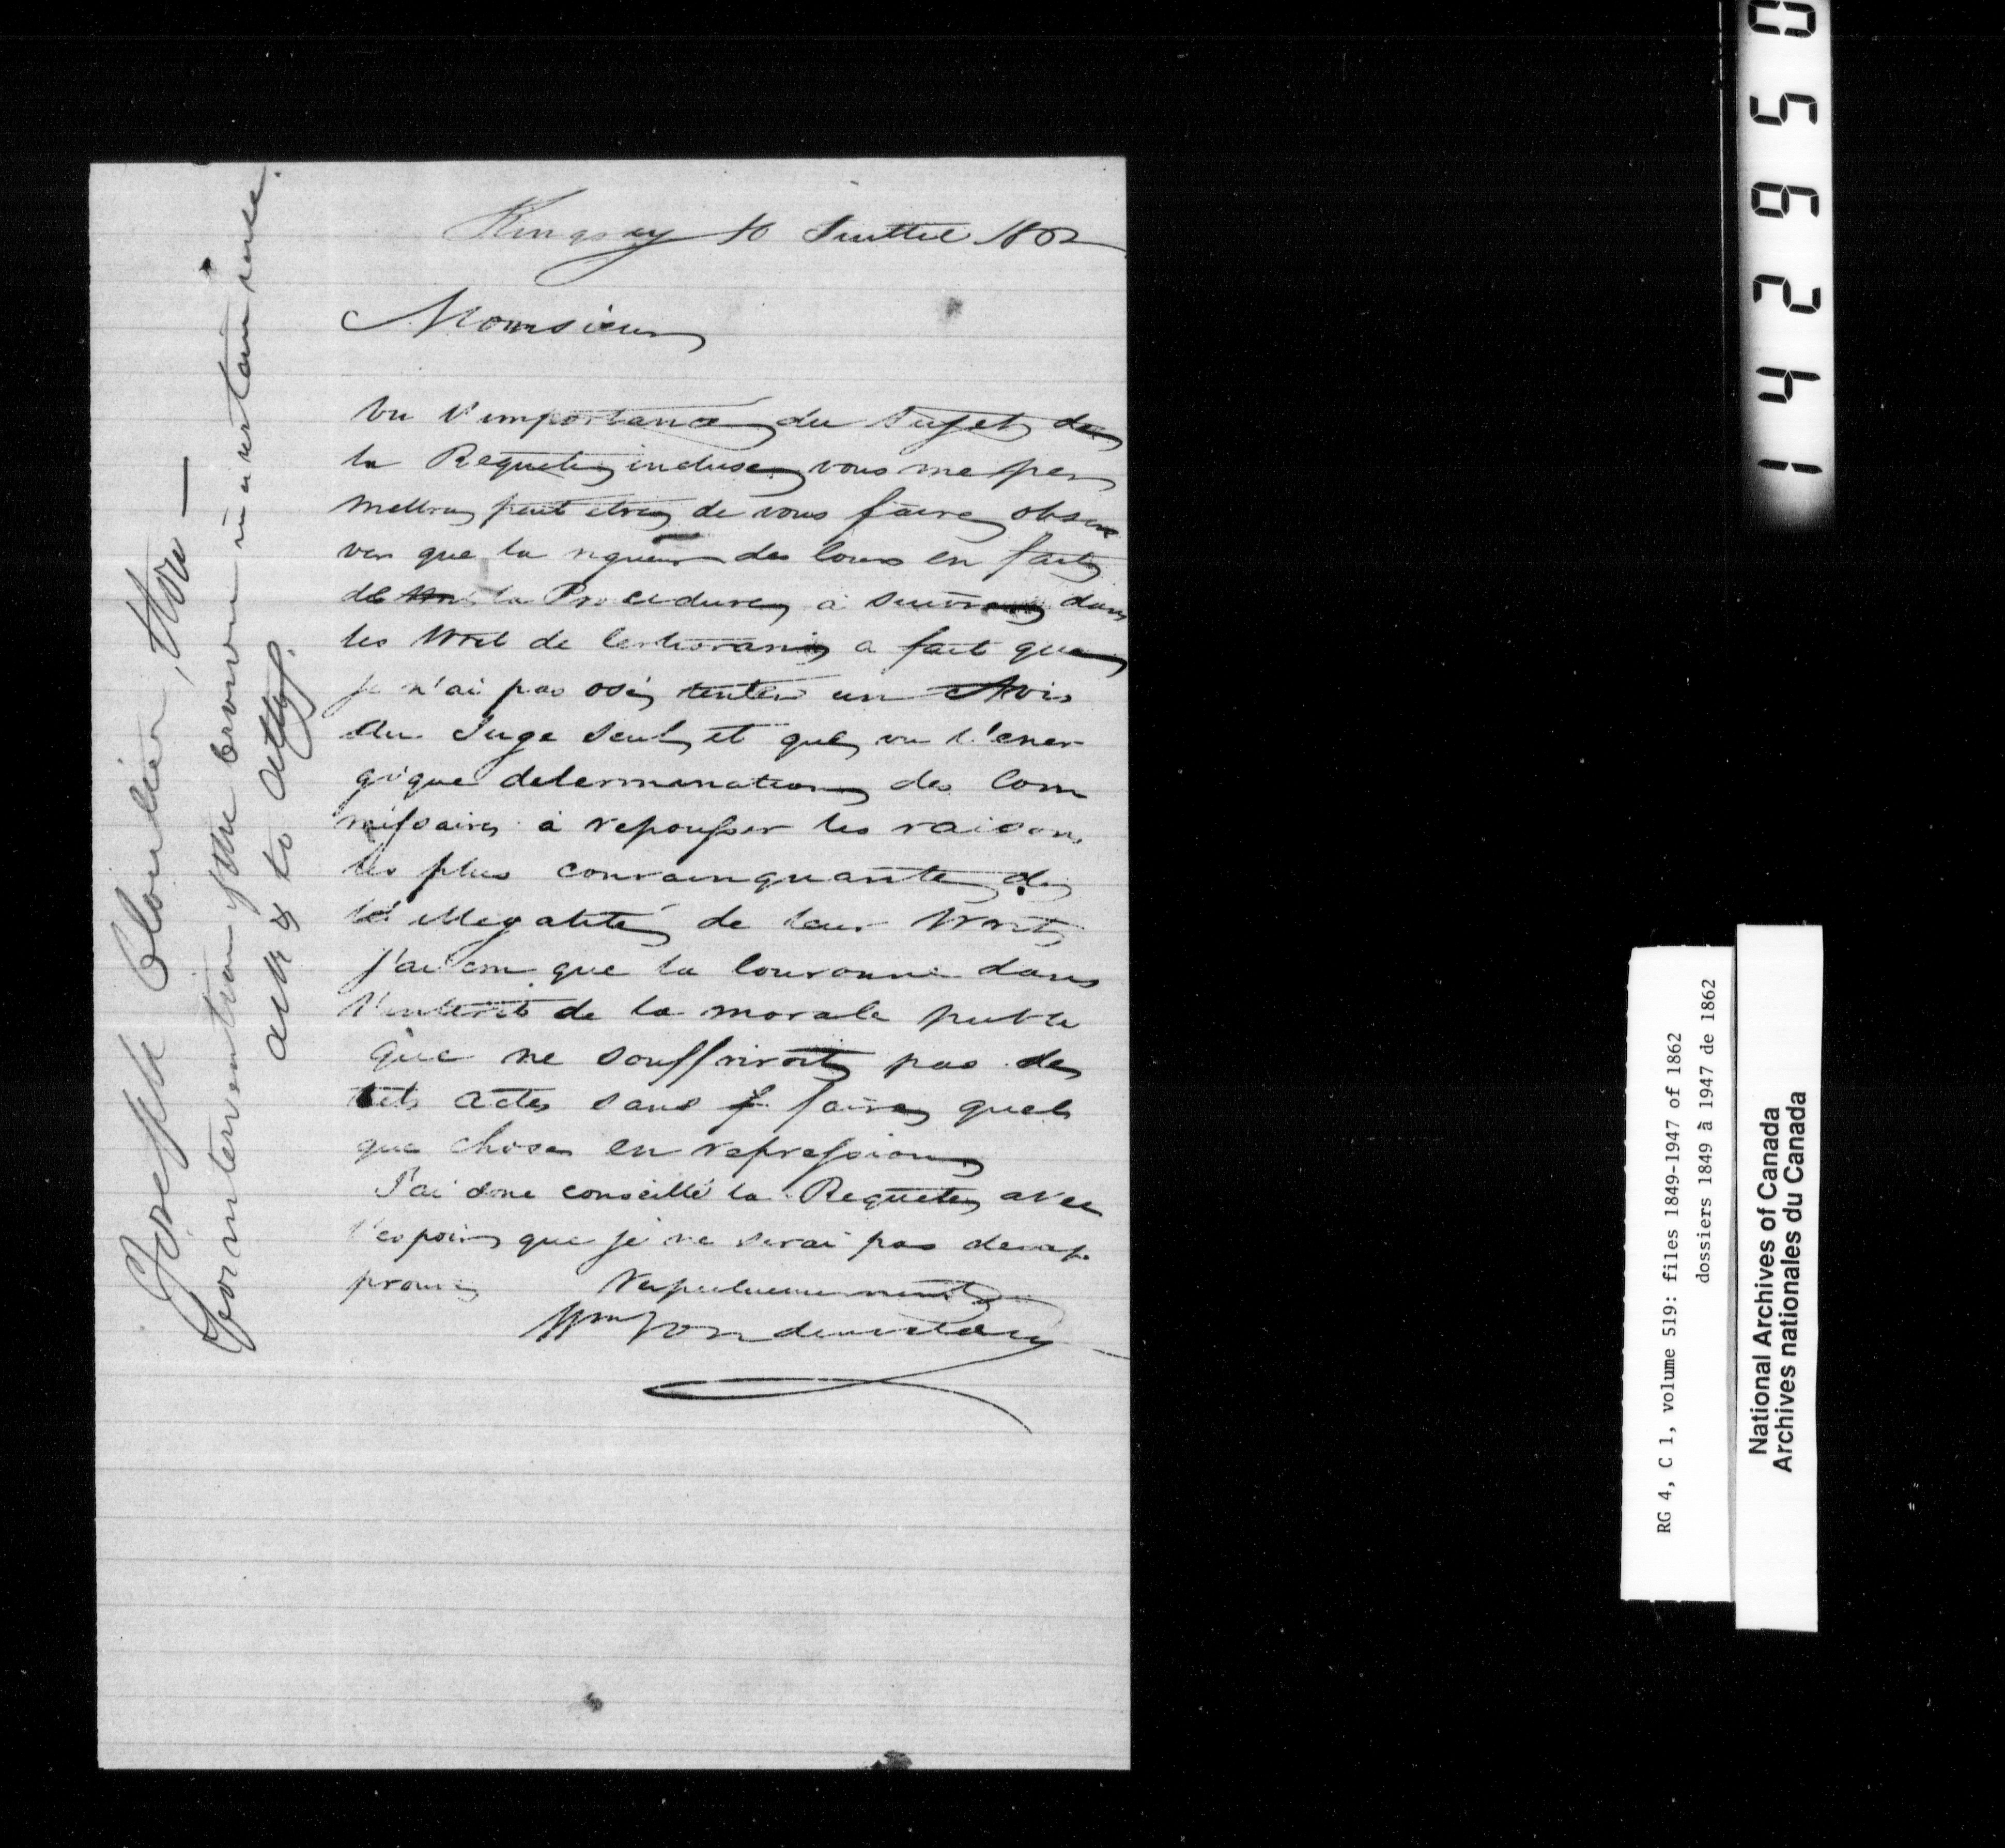 Kingsey 10 Juillet 1862
Monsieur
Vu l'importance du Sujet de
la Requete incluse vous me per
mettrez peut etre de vous faire obser
ver que la rigueur des lois en fait
de la Procedure à suivre dans
les Writ de Certiorari a fait que
je n'ai pas osé tenter un Avis
du Juge seul, et que vu l'ener
gique determination des Com
missaires à repousser les raisons
les plus convainquante de
l'illegalité de leur Writ
j'ai cru que la Couronne dans
l'interet de la morale publi
que ne souffriroit pas de
tels actes sans faire quel
que chose en repression
J'ai donc conseillé la Requete avec
l'espoir que je ne serai pas desap
prouvé Respectueusement
Wm
Joseph Cloutier,
For intervention of the Crown in a certain case.
ack & to Atty.
142950
RG 4, C 1, volume 519: files 1849-1947 of 1862
dossiers 1849 à 1947 de 1862
National Archives of Canada
Archives nationales du Canada